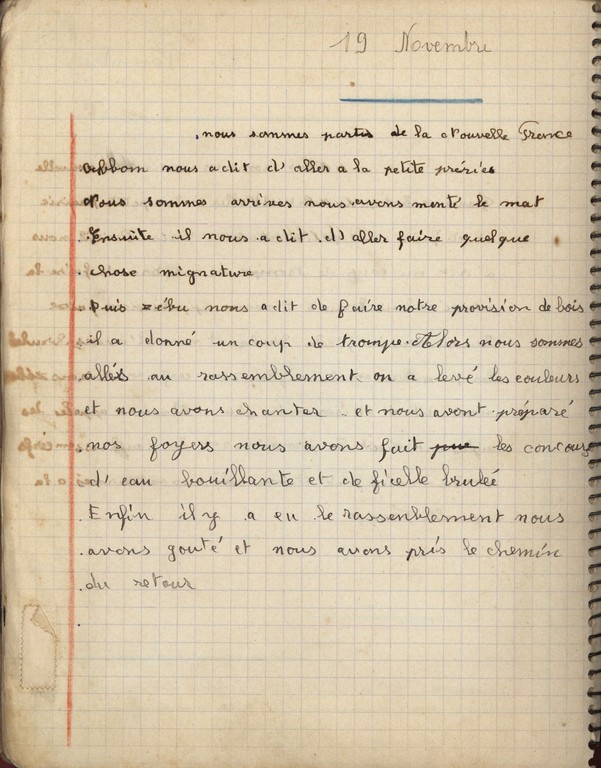 19 Novembre
nous sommes partis de la Nouvelle France
nous a dit d'aller a la petite préries
Nous sommes arrives nous avons monté le mat
Ensuite il nous a dit d'aller faire quelque
chose mignature
Puis zébu nous a dit de faire notre provision de bois
il a donné un coup de trompe. Alors nous sommes
allés au rassemblement on a levé les couleurs
et nous avons chanter et nous avont préparé
nos foyers nous avons fait les concours
d'eau bouillante et de ficelle bruleé
Enfin il y a eu le rassemblement nous
avons gouté et nous avons pris le chemin
du retour